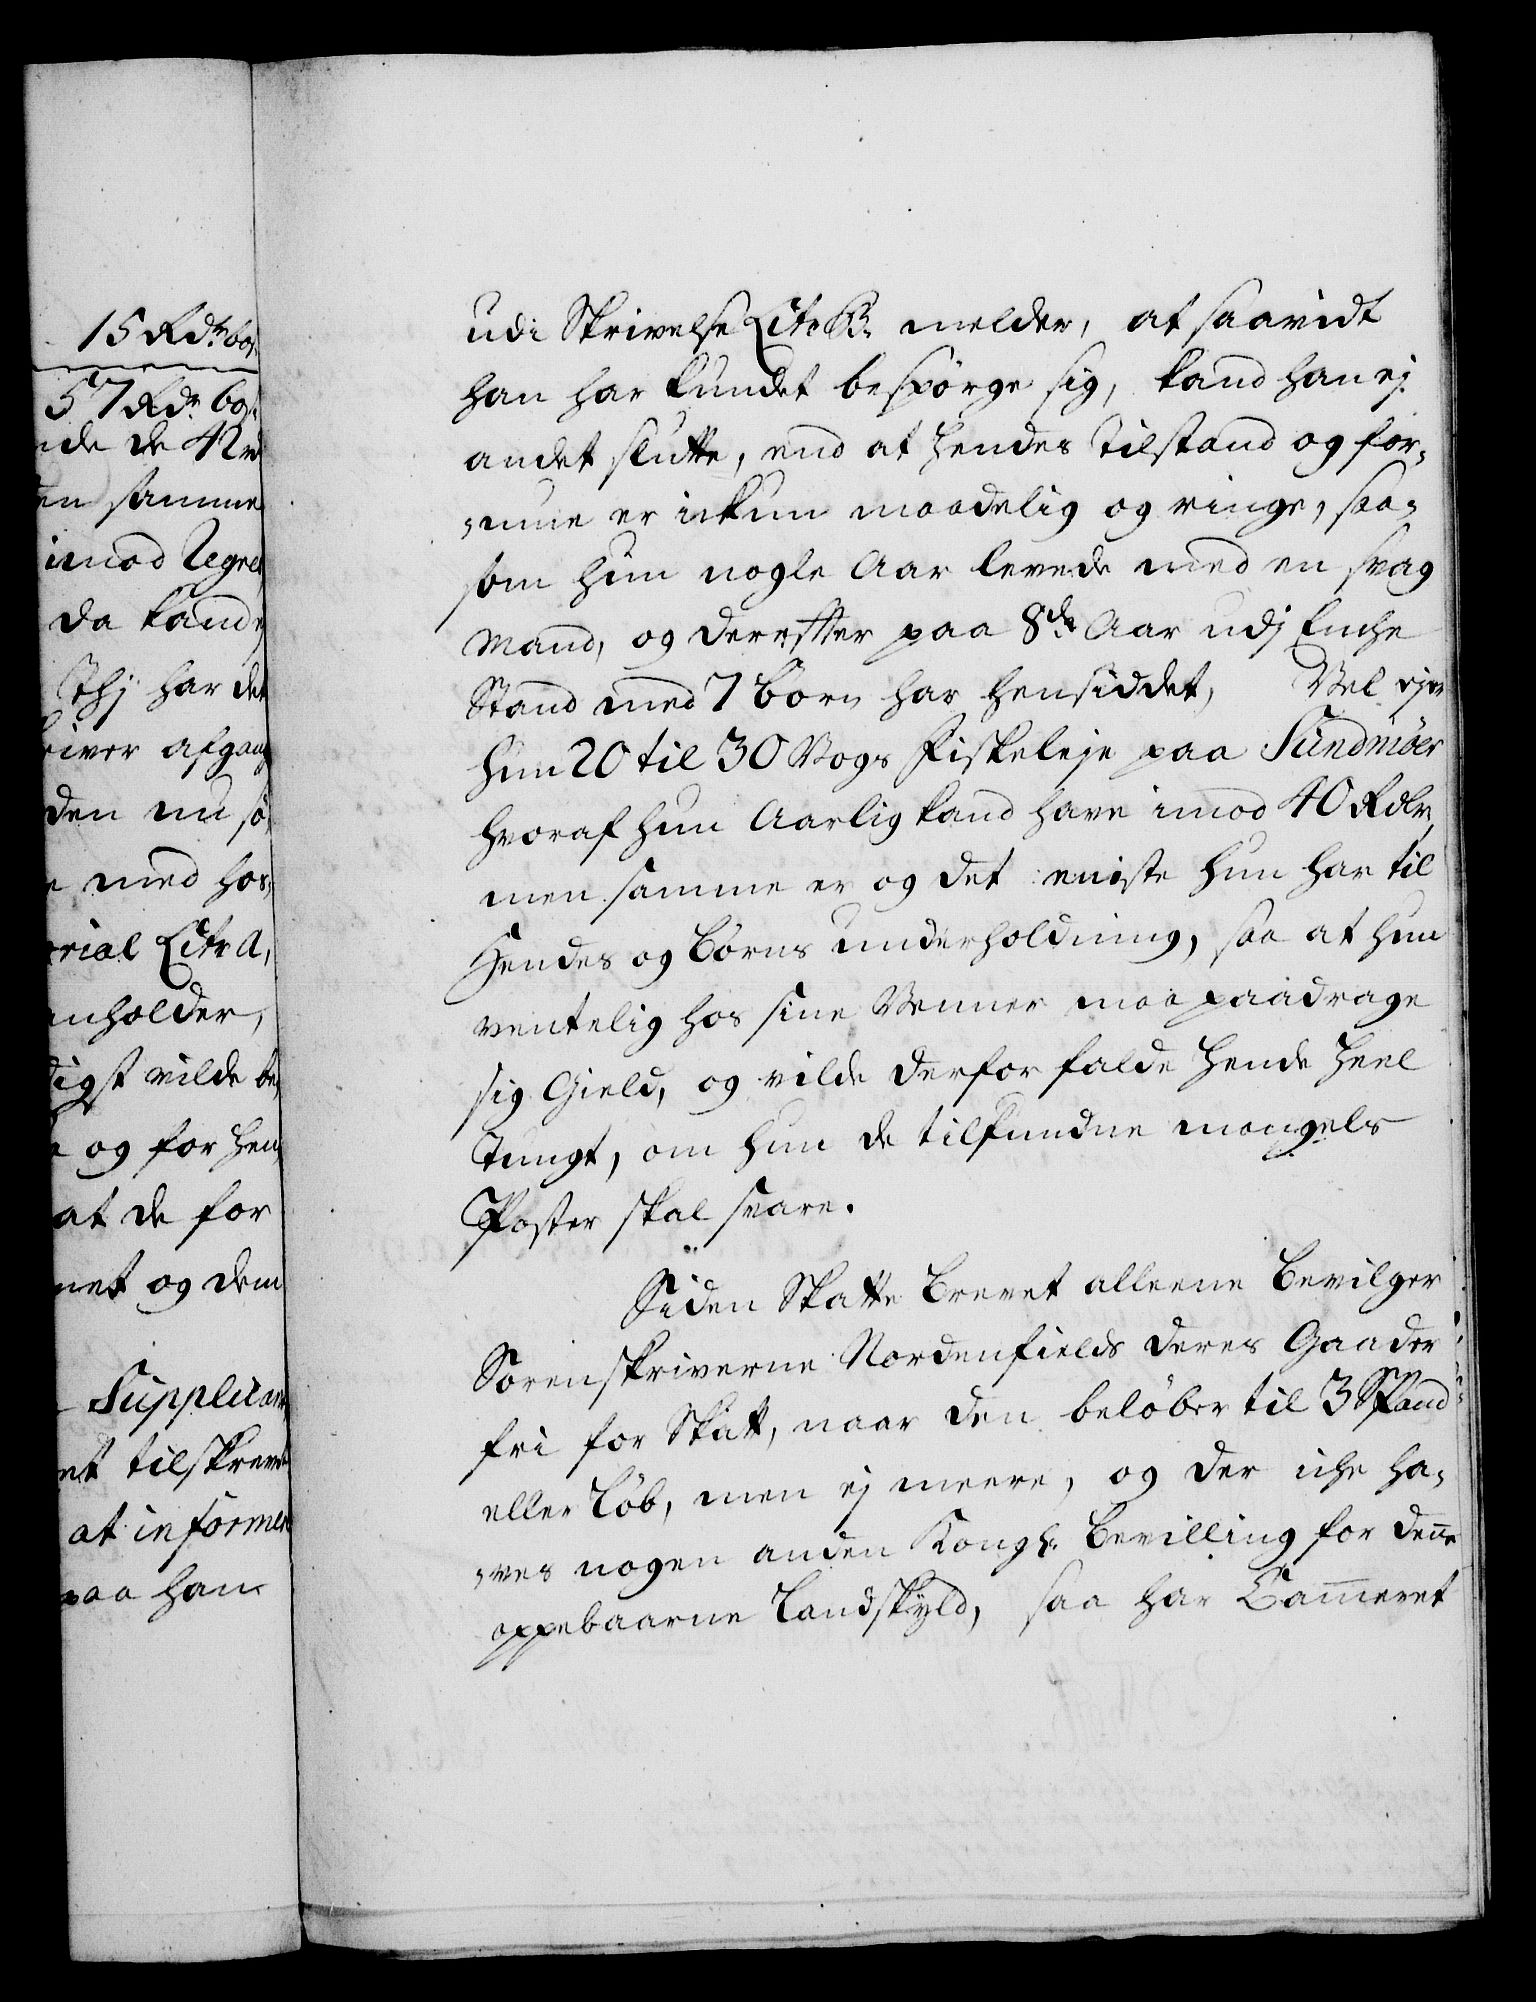 15 Rdr
57 Rdr
de de 42 
en samme
imod Regn
da kand
Thj har det
river afgang
den nu sø
e med hos
rial Litr A,
nholder,
digst vilde be
og for hen
at de for
net og dem
Supplican
et tilskrevet
at informe
paa han
udi Skrivelse Litr B. melder, at saavidt
han har kundet bespörge sig, kand han ej
andet slutte, end at hendes Tilstand og for,
,mue er ickun maadelig og ringe, saa,
som hun nogle Aar levede med en svag
Mand, og derefter paa 8de Aar udj Enche
Stand med 7 Börn har hensiddet, Vel ejer
hun 20 til 30 Vogs Fiskeleje paa Sundmöer
hvoraf hun Aarlig kand have imod 40 Rdlr,
men samme er og det eniste hun har til
Hendes og Börns underholdning, saa at hun
ventelig hos sine Venner maa paadrage
sig Gield, og vilde derfor falde Hende heel
Tungt, om hun de tilfundne mangels
Poster skal svare.
Siden Skatte Brevet alleene Bevilger
Sorenskriverne Nordenfields deres Gaarder
fri for Skatt, naar den belöber til 3 Spand
eller Löb, men ej meere, og der iche ha,
,ves nogen anden Kongl. Bevilling for denne
oppebaarne Landskyld, saa har Cammeret